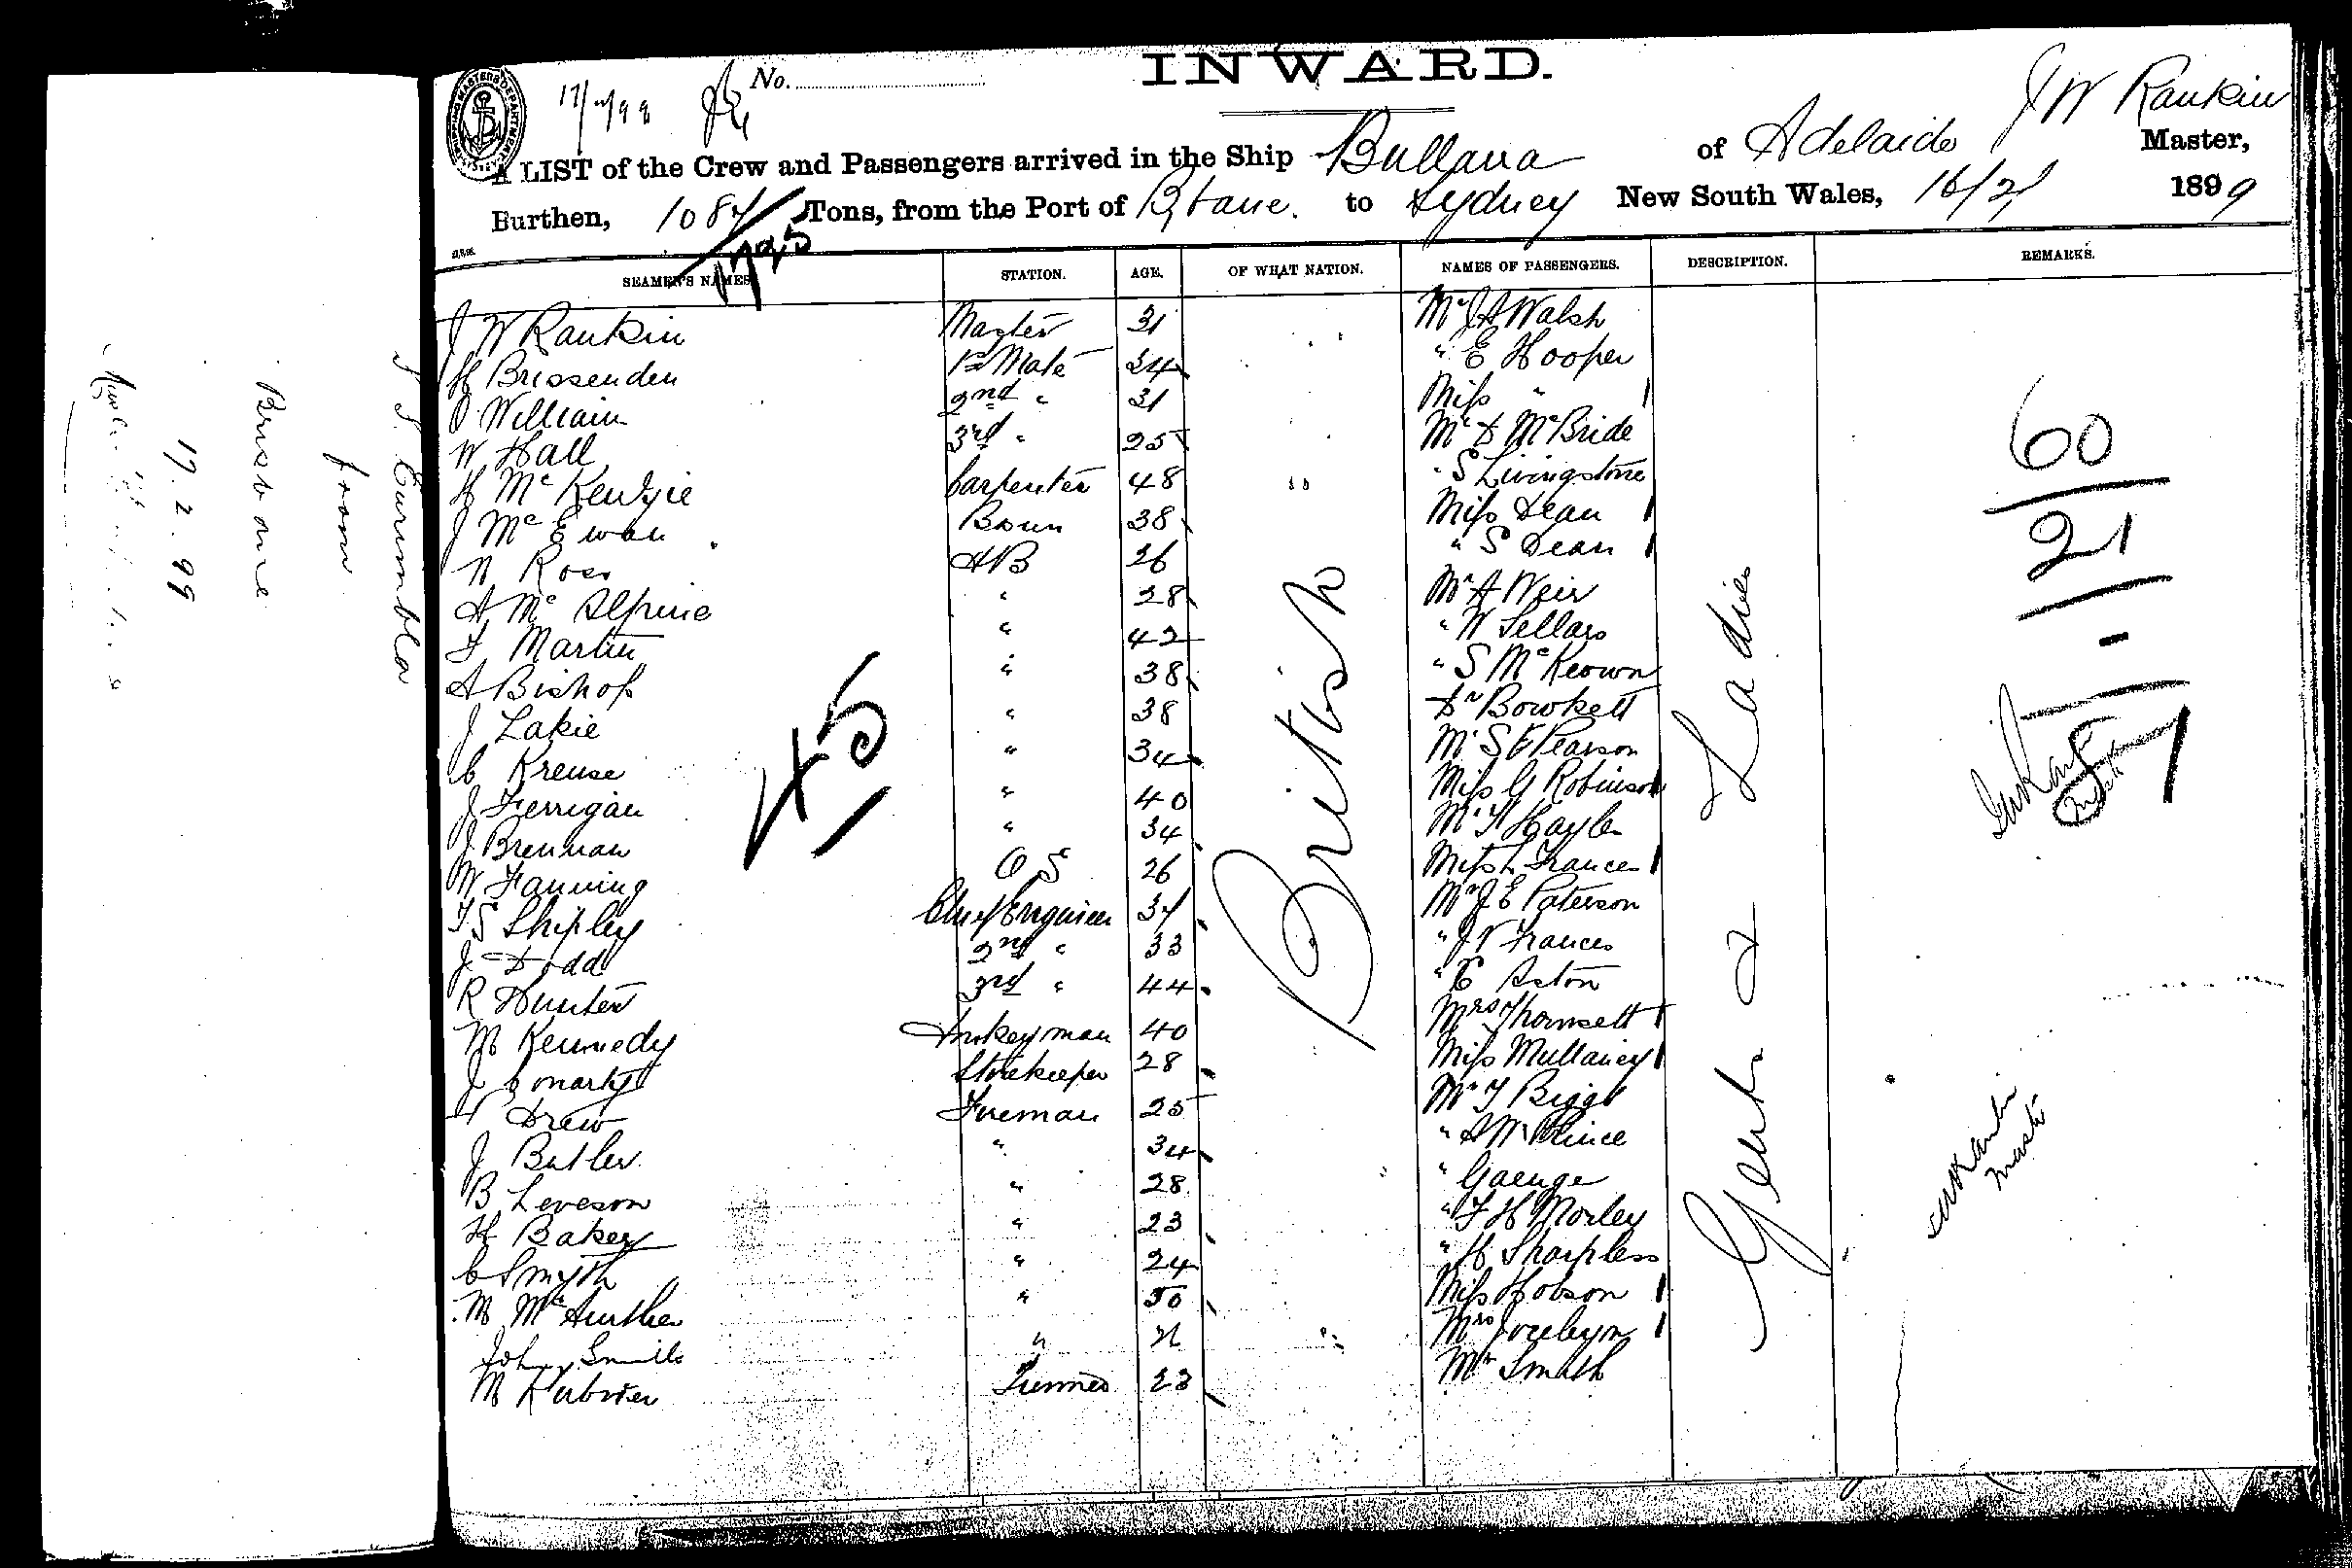 S. S. Currumbla
from
Brisbane
17. 2. 99
INWARD.
No.
J W Rankin
A LIST of the Crew and Passengers arrived in the Ship Bullarra of Adelaide Master,
Burthen, 1087 Tons, from the Port of Bbane. to Sydney New South Wales, 16/2/ 1899
1725
SEAMEN'S NAMES STATION. AGE. OF WHAT NATION. NAMES OF PASSENGERS. DESCRIPTION. REMARKS.
J W Rankin Master 31 Mr J A Walsh
H Brissenden 1st Mate 24 " E Hooper
O William 2nd " 31 Miss " 1
W Hall 3rd " 25 Mr D McBride
H McKenzie Carpenter 48 " S Livingstone
J McEwan Bosun 38 Miss Dean 1
N Ross AB 26 " S Dean 1
A McAlpine " 28 Mr A Weir
F Martin " 42 " W Sellars
A Bishop " 38 " S McKeown
J Lakie " 38 Dr Bowkett
C Kreuse " 34 Mr S E Pearson
J Ferrigan " 40 Miss G Robinson 1
J Brennan " 34 Mr T Hayle
W Fanning O S 26 Miss L Frances 1
T S Shipley Chief Engineer 37 Mr J E Paterson
J Dodd 2nd " 33 " J V Frances
R Hunter 3rd " 44 " E Aston
M Kennedy Donkeyman 40 Mrs Thornsett 1
J Conarty Storekeeper 28 Miss Mullaney 1
T Drew Fireman 25 Mr T Biggs
J Butler " 34 " A W Prince
B Leveson " 28 " Gaenge
H Baker " 23 " F H Morley
C Smyth " 24 " H Sharpless
M McAurther " 50 Miss Hobson 1
John Smith " Mrs Jocelyn 1
M Trimmer 23 Mr Smath
45
British
Gents & Ladies
60
21
-